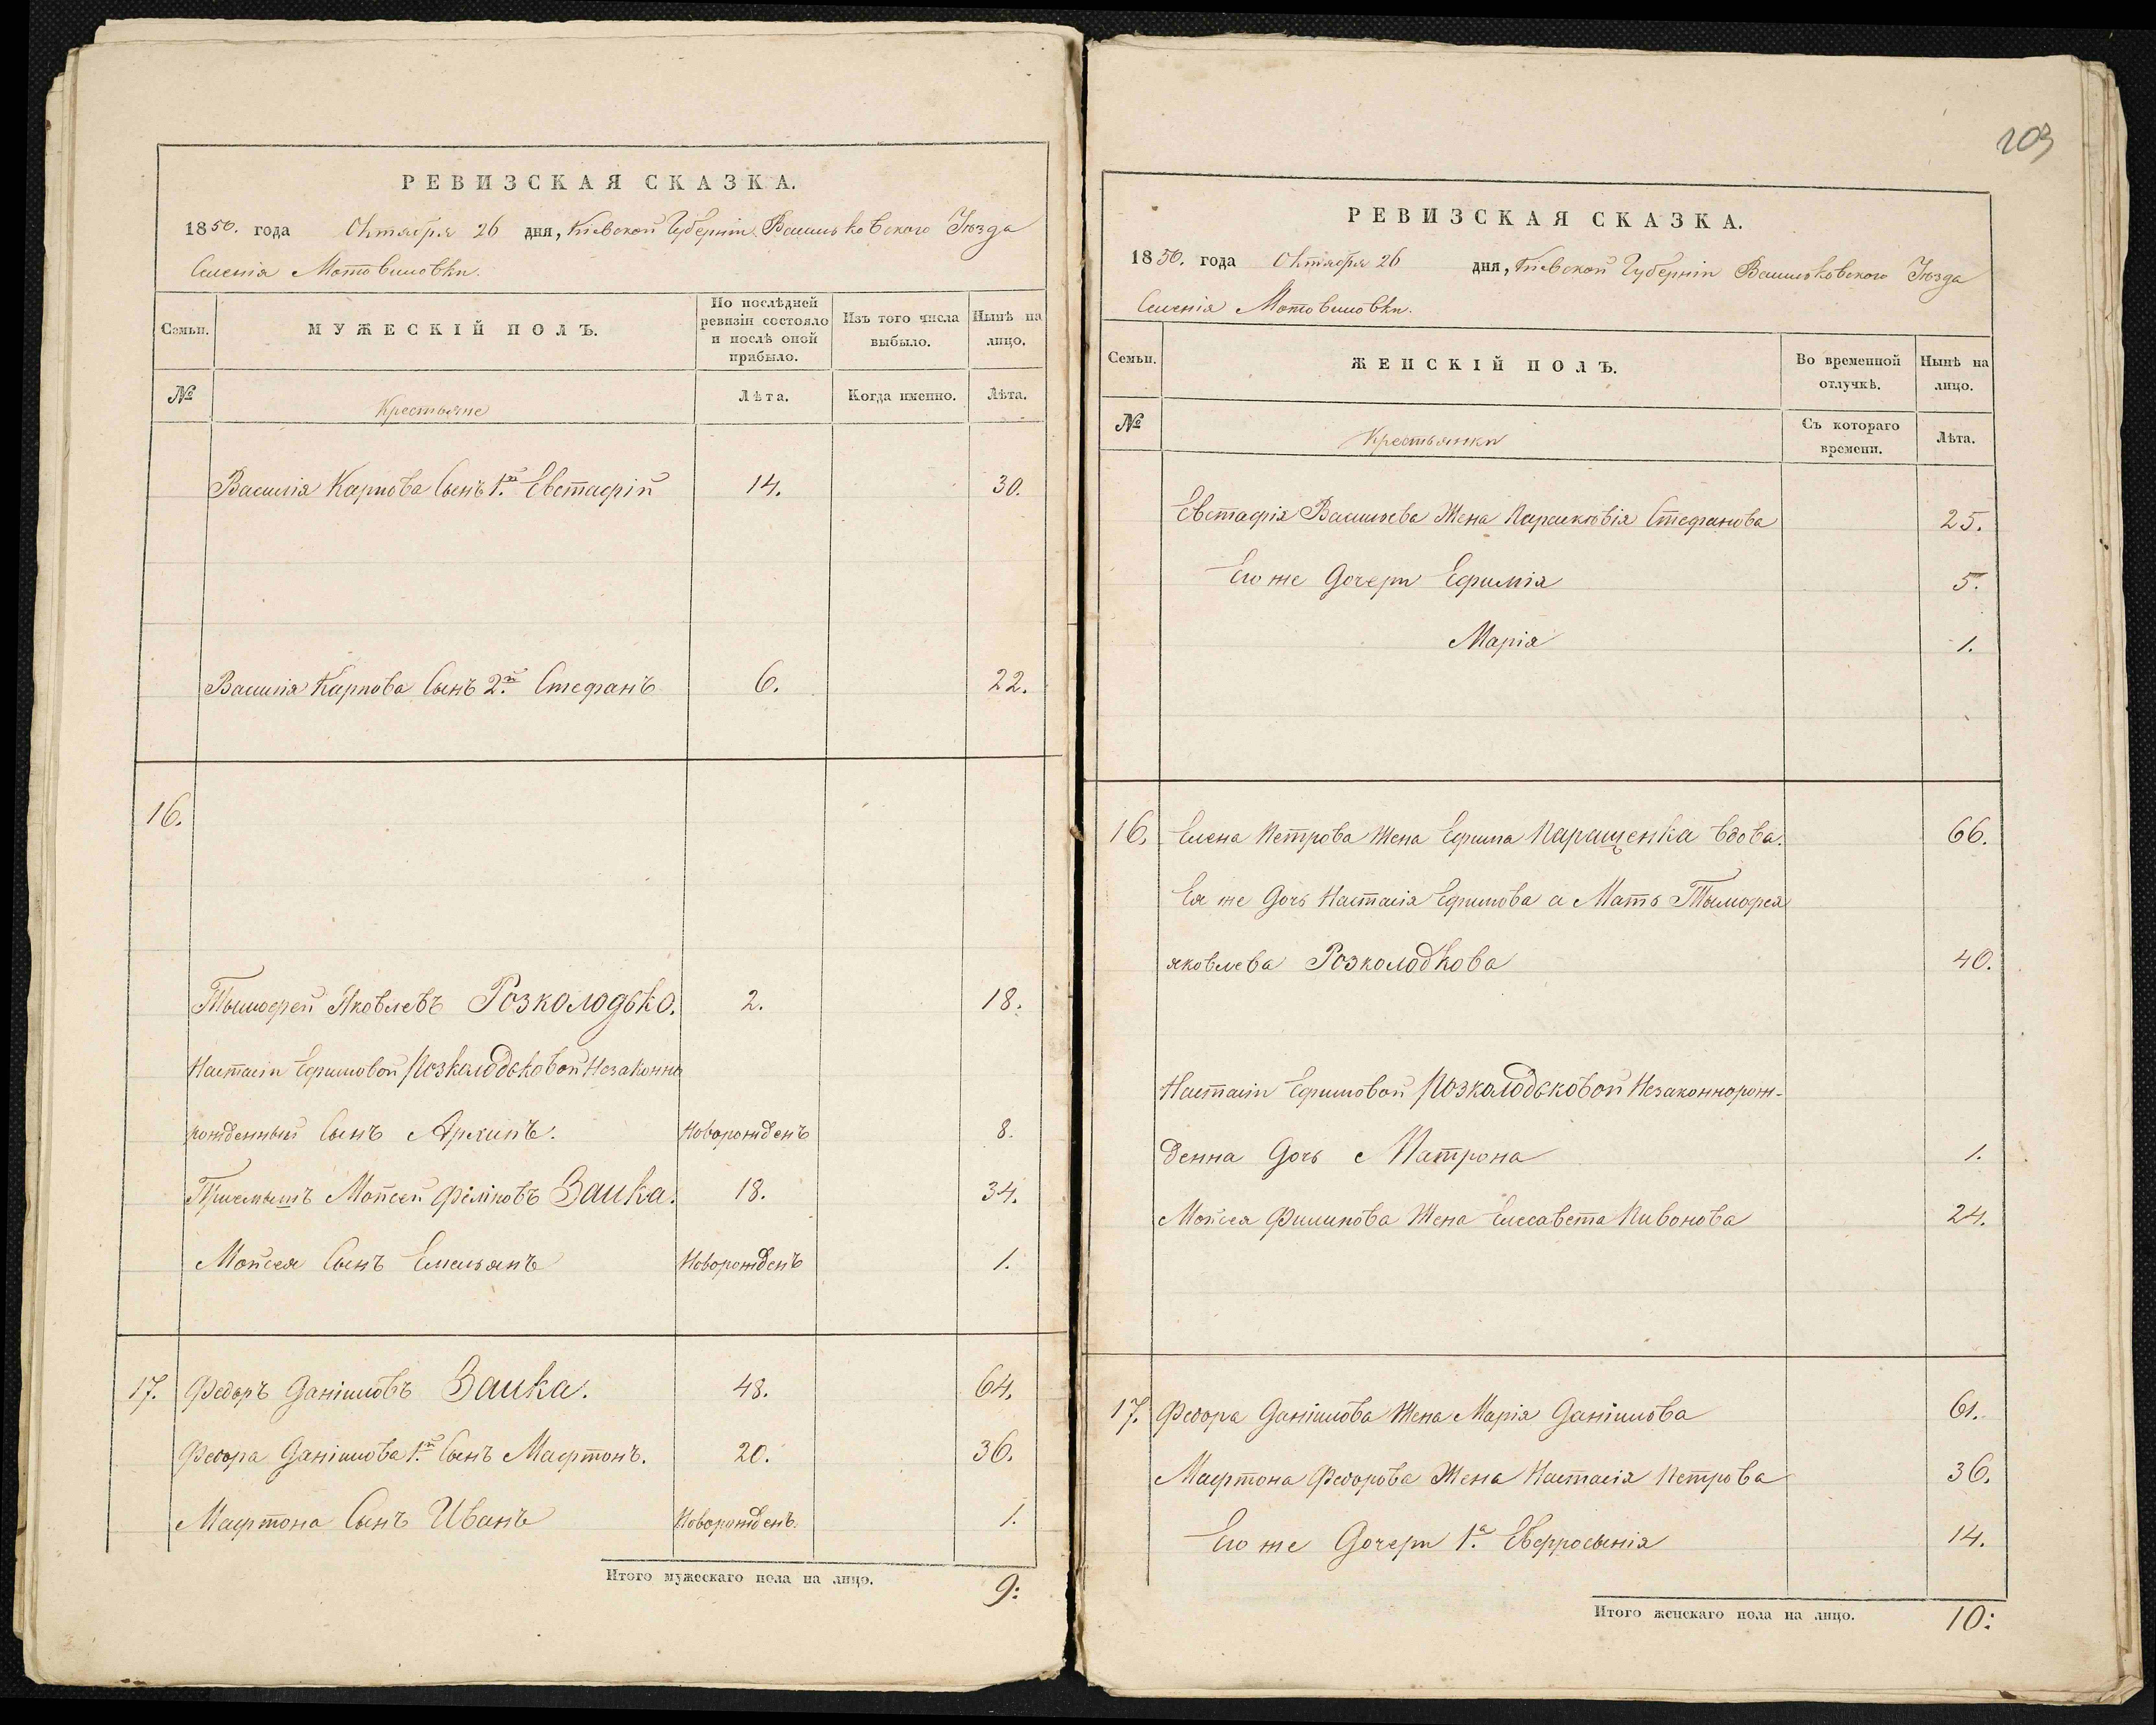 РЕВИЗСКАЯ СКАЗКА.
1850. года Октября 26 дня, Кіевской Губерніи Васильковского Уезда
Селенія Мотовиловки.
Семьи.
МУЖЕСКІЙ ПОЛЪ.
По послѣдней ревизіи состояло и послѣ оной прибыло.
Изъ того числа выбыло.
Нынѣ на лицо.
№
Крестьяне
Лѣта.
Когда именно.
Лѣта.
Василія Карпова Сынъ 1.й Евстафій 14. 30.
Василія Карпова Сынъ 2.й Стефанъ 6. 22.
16.
Тымофей Яковлевъ Розколодько. 2. 18.
Настасіи Ефимовой Розколодьковой Незаконно
рожденный Сынъ Архипъ. Новорожденъ 8.
Пріемышъ Мойсей Филиповъ Заика. 18. 34.
Мойсея Сынъ Емельянъ Новорожденъ 1.
17. Федоръ Даніиловъ Заика. 48. 64.
Федора Даніилова 1.й Сынъ Мафтонъ. 20. 36.
Мафтона Сынъ Иванъ Новорожденъ. 1.
Итого мужескаго пола на лицо. 9:
203
РЕВИЗСКАЯ СКАЗКА.
1850. года Октября 26 дня, Кіевской Губерніи Васильковского Уезда
Селенія Мотовиловки.
Семьи.
ЖЕНСКІЙ ПОЛЪ.
Во временной отлучкѣ.
Нынѣ на лицо.
№
Крестьянки
Съ котораго времени.
Лѣта.
Евстафія Васильева Жена Параскѣвія Стефанова 25.
Его же Дочери Ефимія 5.
Марія 1.
16. Елена Петрова Жена Ефима Паращенка вдова. 66.
Ея же Дочь Настасія Ефимова а Мать Тымофея
яковлева Розколодкова 40.
Настасіи Ефимовой Розколодьковой Незаконнорож-
денна Дочь Матрона 1.
Мойсея Филипова Жена Елесавета Пивонова 24.
17. Федора Даніилова Жена Марія Даніилова 61.
Мафтона Федорова Жена Настасія Петрова 36.
Его же Дочери 1.а Евфросынія 14.
Итого женскаго пола на лицо. 10: